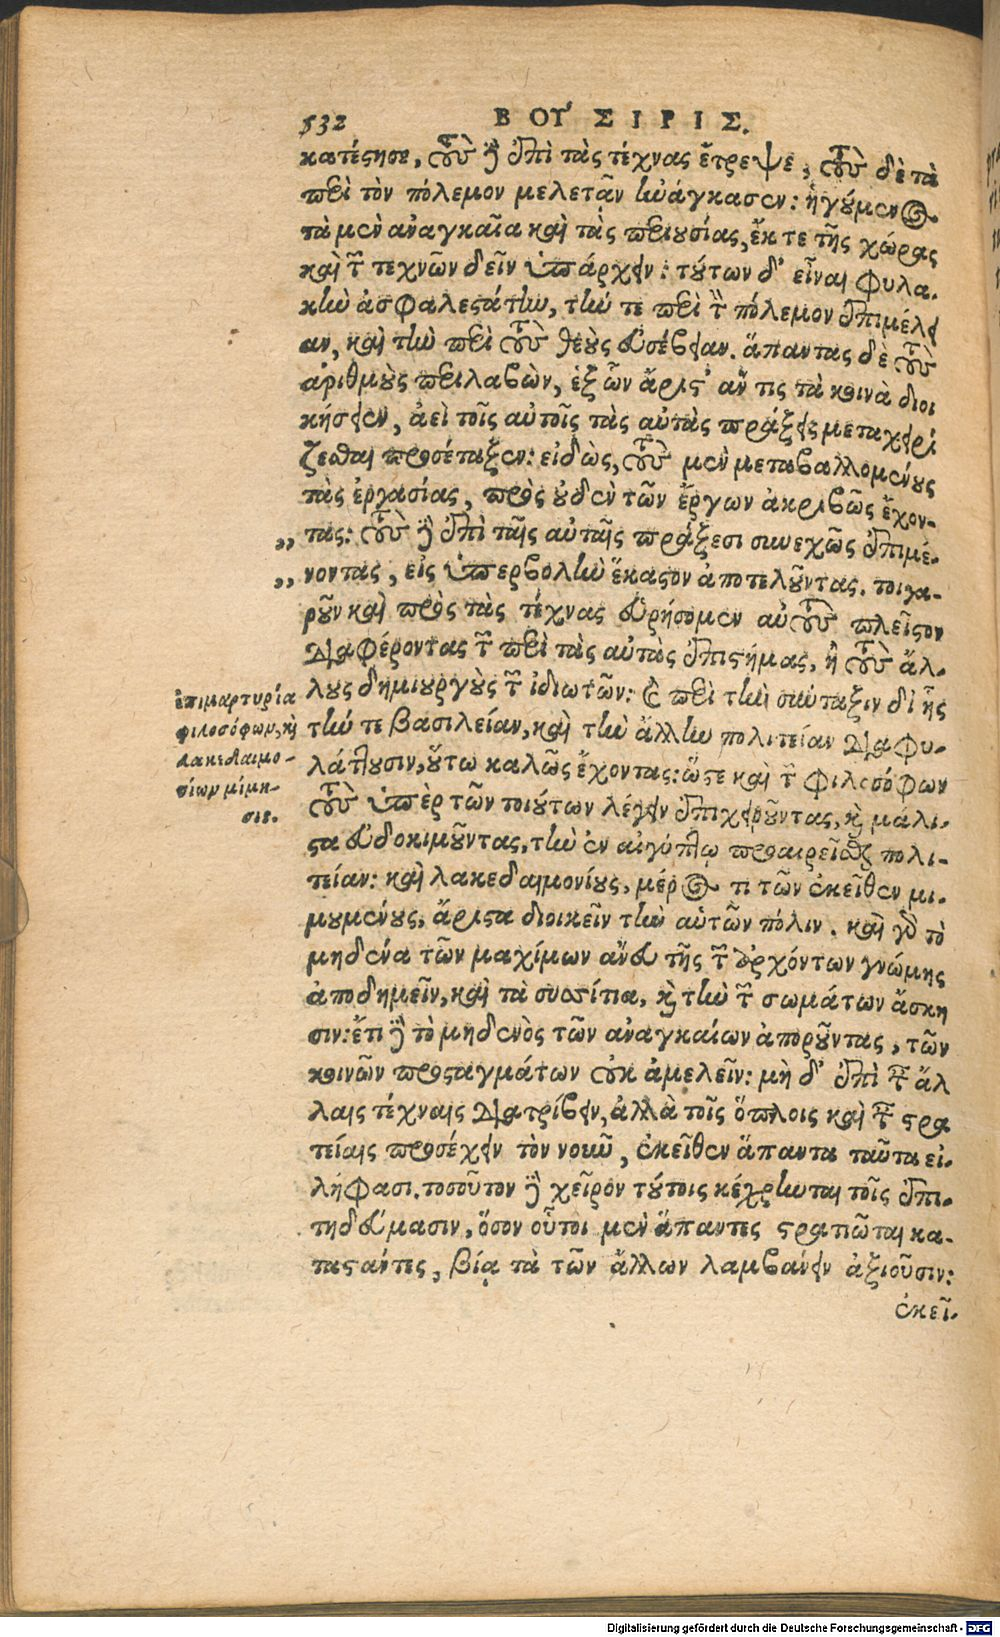 532 ΒΟΎΣΙΡΙΣ.
κατέστησε, τοὺς δ' ἐπὶ τὰς τέχνας ἔτρεψε, τοὺς δὲ τὰ
περὶ τὸν πόλεμον μελετᾶν ἠνάγκασεν: ἡγούμενος
τὰ μὲν ἀναγκαῖα καὶ τὰς περιουσίας, ἔκ τε τῆς χώρας
καὶ τῶν τεχνῶν δεῖν ὑπάρχειν: τούτων δ' εἶναι φυλα-
κὴν ἀσφαλεστάτην, τήν τε περὶ τὸν πόλεμον ἐπιμέλει
αν, καὶ τὴν περὶ τοὺς θεοὺς εὐσέβειαν. ἅπαντας δὲ τοὺς
ἀριθμοὺς περιλαβὼν, ἐξ ὧν ἄριστ' ἄν τις τὰ κοινὰ διοι
κήσειεν, ἀεὶ τοῖς αὐτοῖς τὰς αὐτὰς πράξεις μεταχειρί
ζεσθαι προσέταξεν: εἰδὼς, τοὺς μὲν μεταβαλλομένους
τὰς ἐργασίας, πρὸς οὐδὲν τῶν ἔργων ἀκριβῶς ἔχον-
,, τας: τοὺς δ' ἐπὶ ταῖς αὐταῖς πράξεσι συνεχῶς ἐπιμέ-
,, νοντας, εἰς ὑπερβολὴν ἕκαστον ἀποτελοῦντας. τοιγα-
ροῦν καὶ πρὸς τὰς τέχνας εὑρήσομεν αὐτοὺς πλεῖστον
διαφέροντας τῶν περὶ τὰς αὐτὰς ἐπιστήμας, ἢ τοὺς ἄλ-
λους δημιουργοὺς τῶν ἰδιωτῶν: καὶ περὶ τὴν σύνταξιν δι' ἧς
τήν τε βασιλείαν, καὶ τὴν ἄλλην πολιτείαν διαφυ-
λάττουσιν, οὕτω καλῶς ἔχοντας: ὥστε καὶ τῶν φιλοσόφων
τοὺς ὑπὲρ τῶν τοιούτων λέγειν ἐπιχειροῦντας, καὶ μάλι-
στα εὐδοκιμοῦντας, τὴν ἐν αἰγύπτῳ προαιρεῖσθαι πολι-
τείαν: καὶ λακεδαιμονίους, μέρος τι τῶν ἐκεῖθεν μι-
μουμένους, ἄριστα διοικεῖν τὴν αὑτῶν πόλιν. καὶ γὰρ τὸ
μηδένα τῶν μαχίμων ἄνευ τῆς τῶν ἀρχόντων γνώμης
ἀποδημεῖν, καὶ τὰ συσσίτια, καὶ τὴν τῶν σωμάτων ἄσκη
σιν: ἔτι δὲ τὸ μηδενὸς τῶν ἀναγκαίων ἀποροῦντας, τῶν
κοινῶν προσταγμάτων οὐκ ἀμελεῖν: μὴ δ' ἐπὶ ταῖς ἄλ
λαις τέχναις διατρίβειν, ἀλλὰ τοῖς ὅπλοις καὶ ταῖς στρα
τείαις προσέχειν τὸν νοῦν, ἐκεῖθεν ἅπαντα ταῦτα εἰ-
λήφασι. τοσοῦτον δὲ χεῖρον τούτοις κέχρηνται τοῖς ἐπι-
τηδεύμασιν, ὅσον οὗτοι μὲν ἅπαντες στρατιῶται κα-
ταστάντες, βίᾳ τὰ τῶν ἄλλων λαμβάνειν ἀξιοῦσιν:
ἐκεῖ-
ἐπιμαρτυρία
φιλοσόφων, καὶ
λακεδαιμο-
νίων μίμη-
σις.
Digitalisierung gefördert durch die Deutsche Forschungsgemeinschaft - DFG